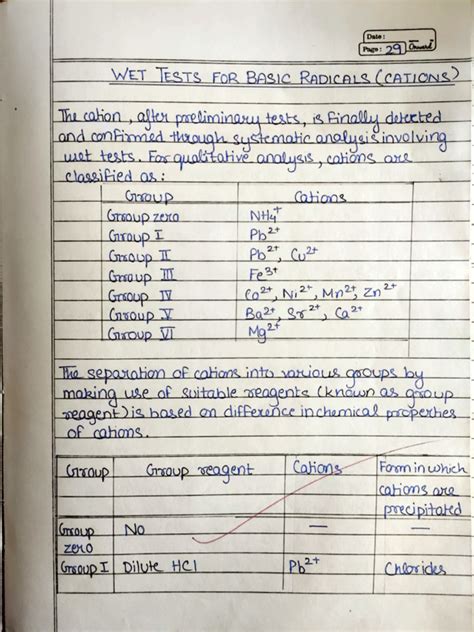 Date :
Page : 29 Onward
WET TESTS FOR BASIC RADICALS (CATIONS)
The cation, after preliminary tests, is finally detected
and confirmed through systematic analysis involving
wet tests. For qualitative analysis, cations are
classified as :
Group Cations
Group zero NH₄⁺
Group I Pb²⁺
Group II Pb²⁺, Cu²⁺
Group III Fe³⁺
Group IV Co²⁺, Ni²⁺, Mn²⁺, Zn²⁺
Group V Ba²⁺, Sr²⁺, Ca²⁺
Group VI Mg²⁺
The separation of cations into various groups by
making use of suitable reagents (known as group
reagent) is based on difference in chemical properties
of cations.
Group Group reagent Cations Form in which
cations are
precipitated
Group No — —
zero
Group I Dilute HCl Pb²⁺ Chlorides